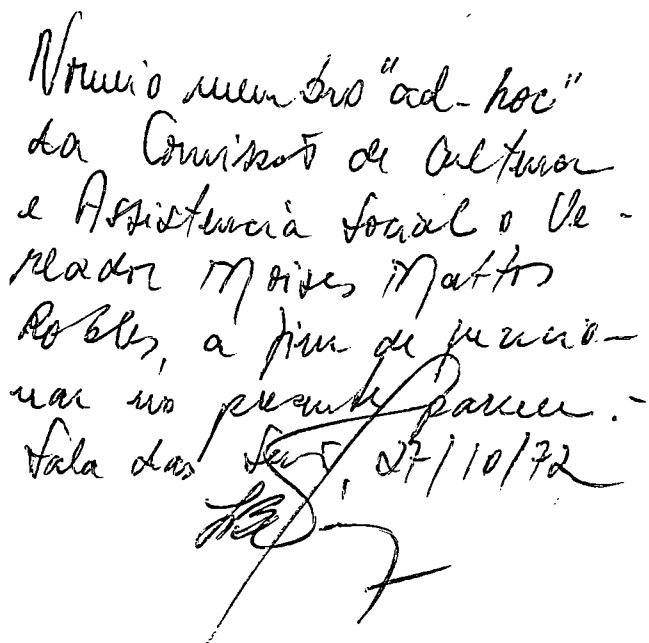 Nomeio membro "ad-hoc"
da Comissão de Cultura
e Assistencia Social o Ve-
reador Moises Mattos
Robles, a fim de funcio-
nar no presente parecer.-
Sala das Sessões, 27/10/72